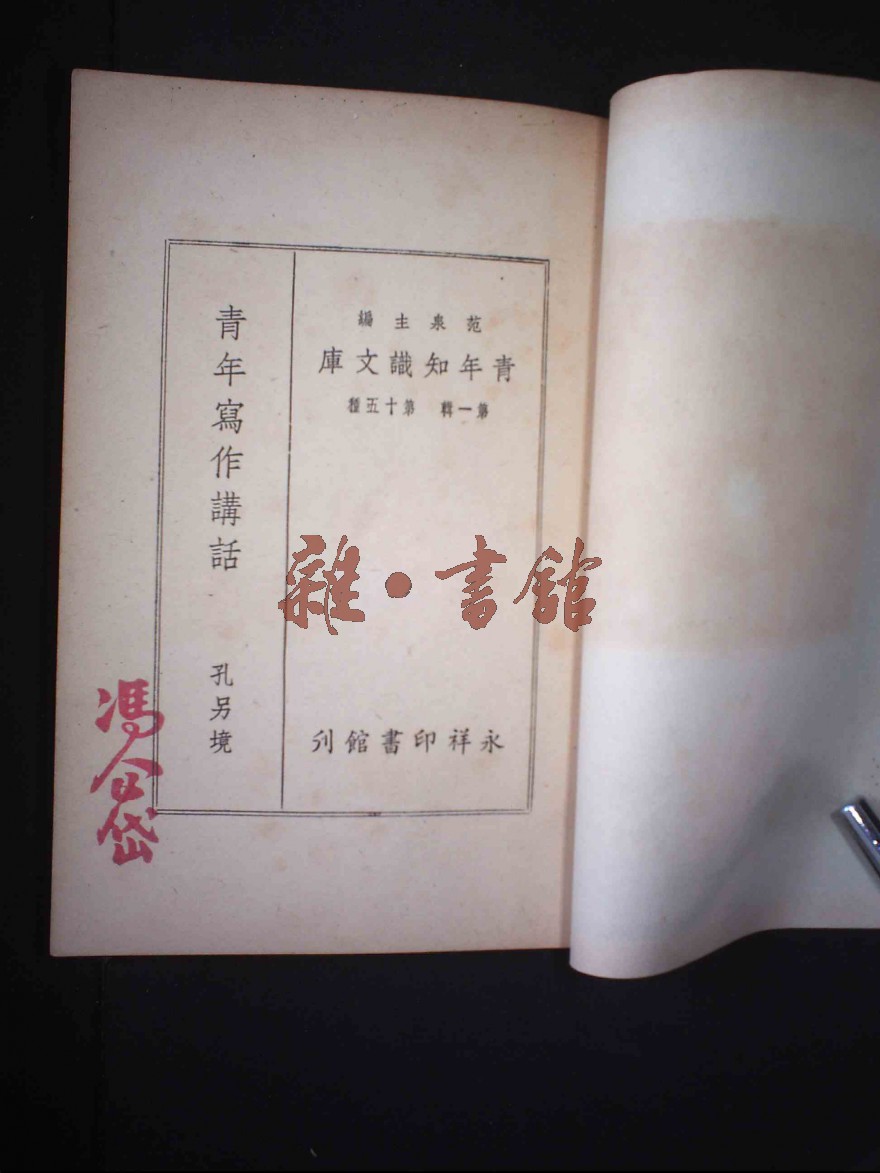 范泉主編
青年知識文庫
第一輯 第十五種
永祥印書館刋
青年寫作講話
孔另境
雜·書館